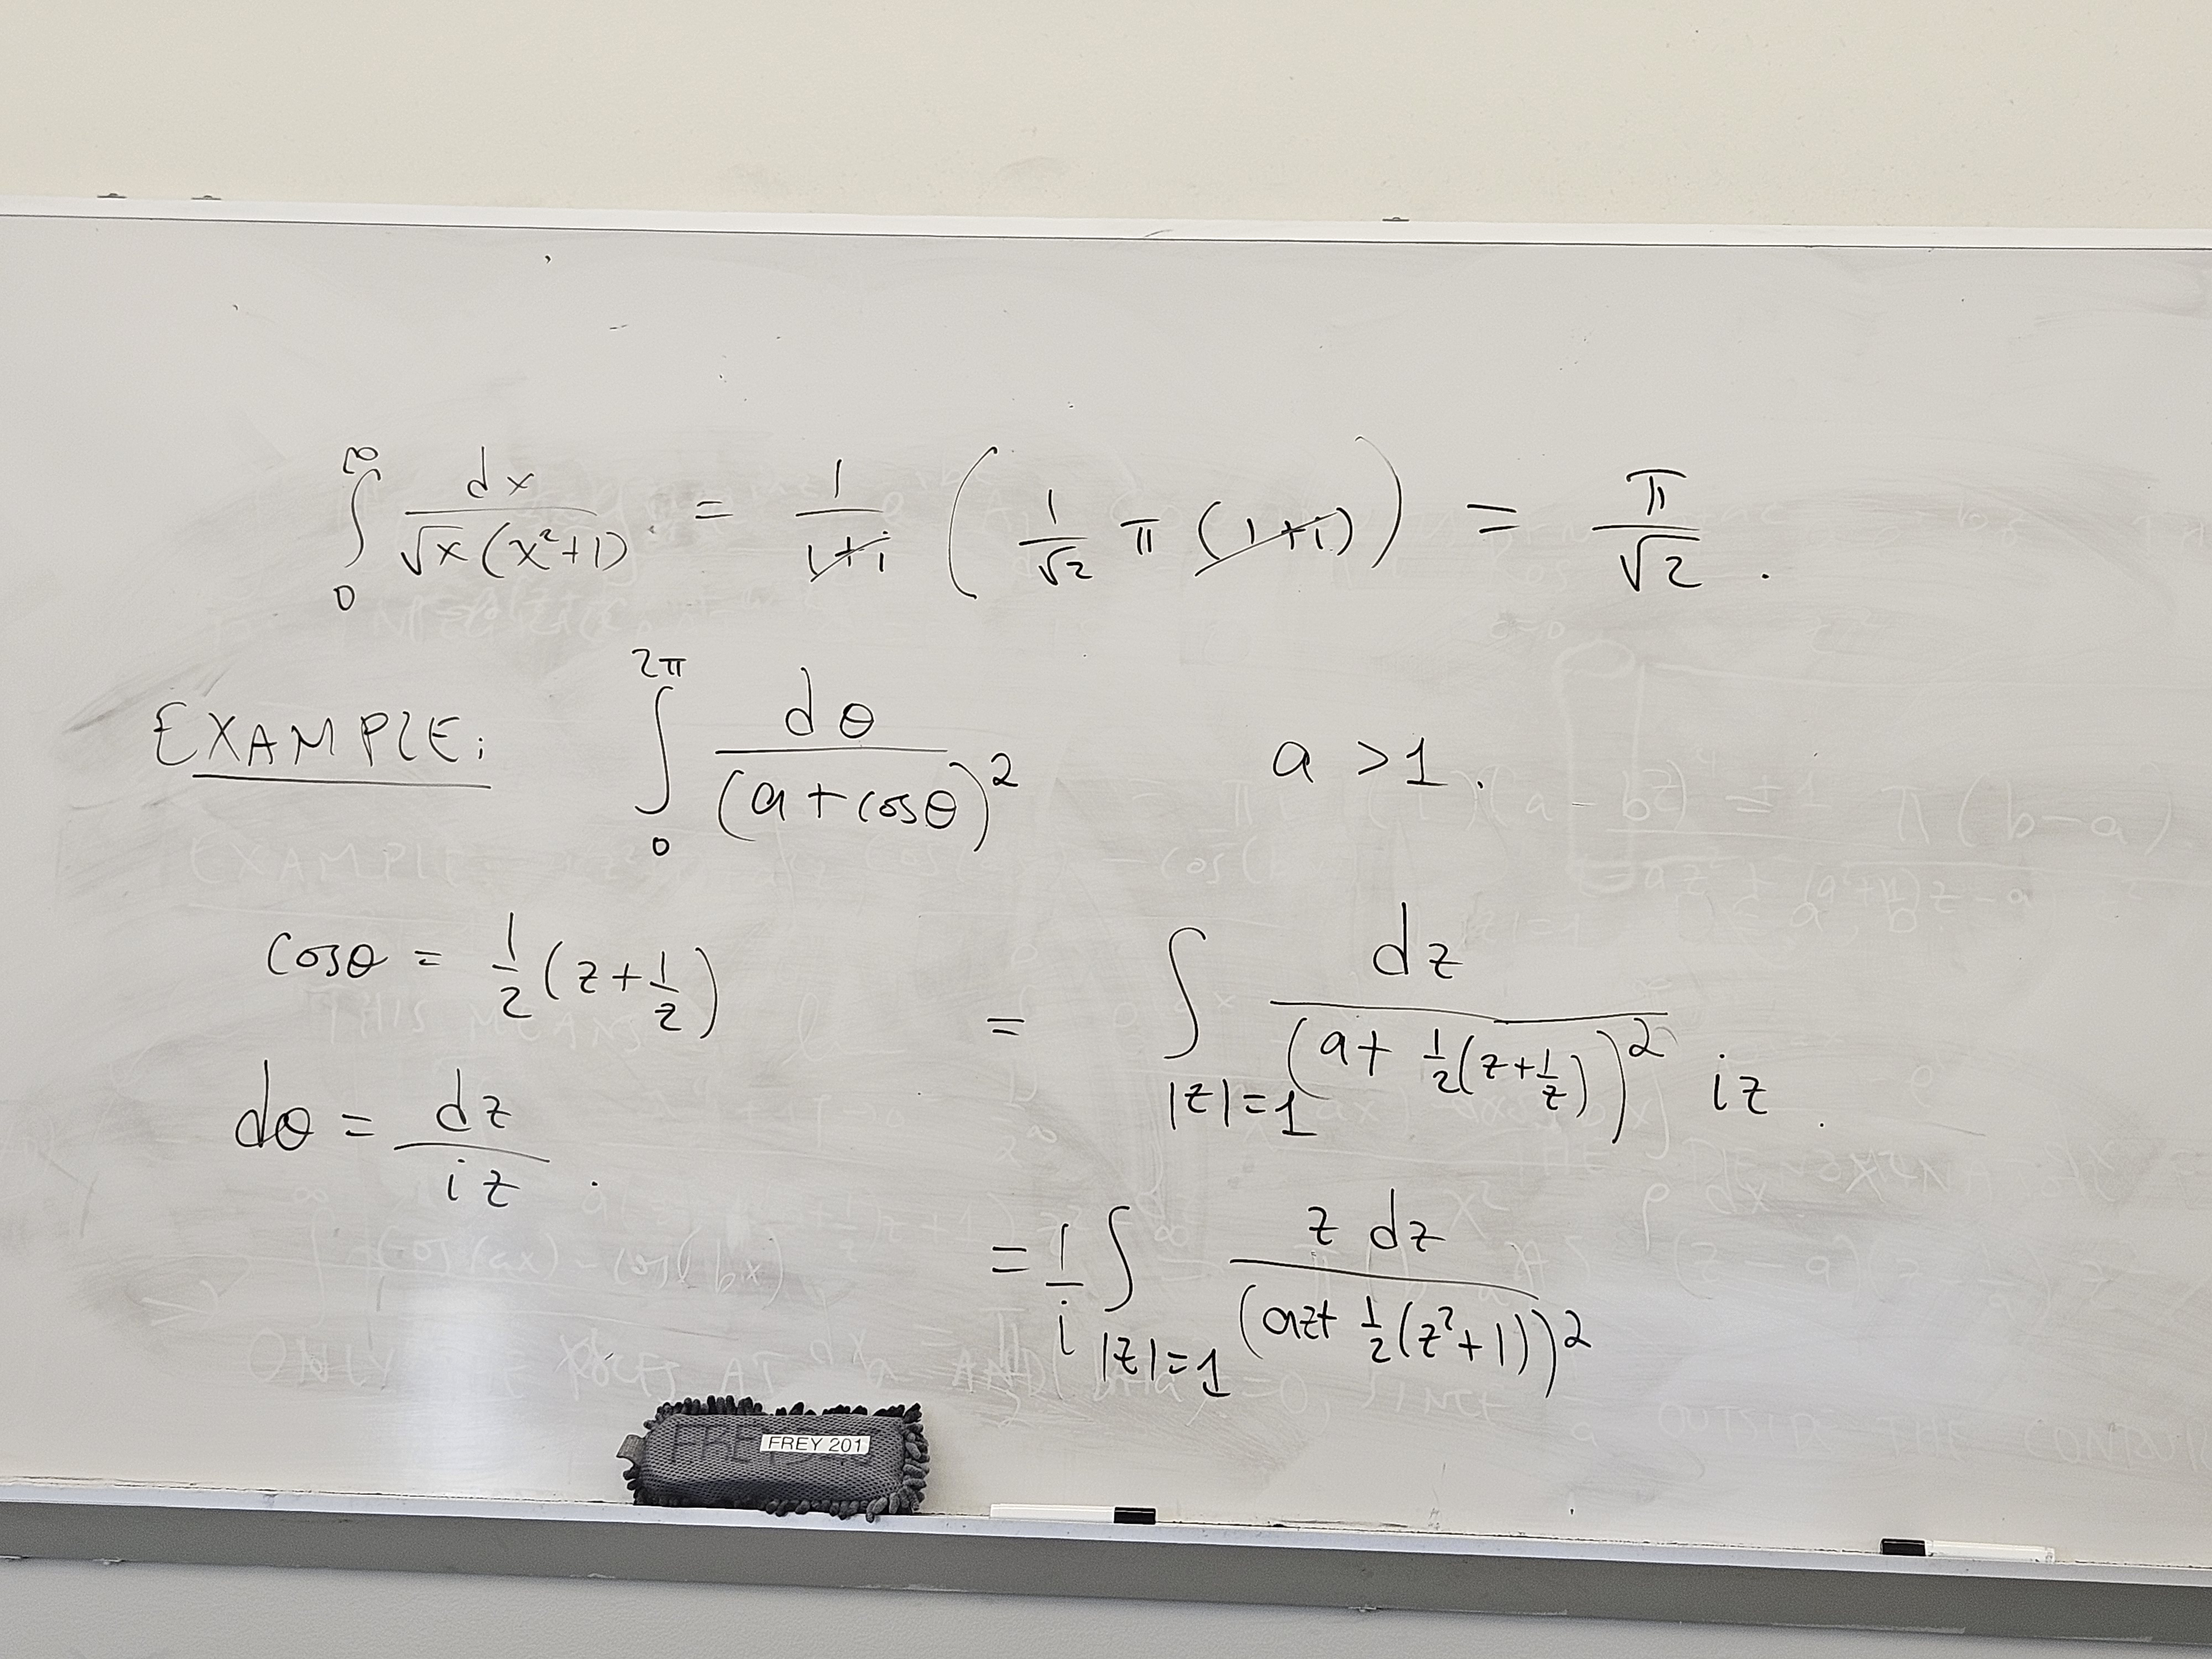 ∫₀^∞ dx / (√x (x²+1)) = 1/(1+i) ( 1/√2 π (1+i) ) = π/√2 .
EXAMPLE: ∫₀^2π dθ / (a + cosθ)² a > 1 .
cosθ = 1/2 (z + 1/z)
= ∫_|z|=1 dz / ((a + 1/2 (z + 1/z))² iz) .
dθ = dz / iz .
= 1/i ∫_|z|=1 z dz / (az + 1/2 (z²+1))²
FREY 201